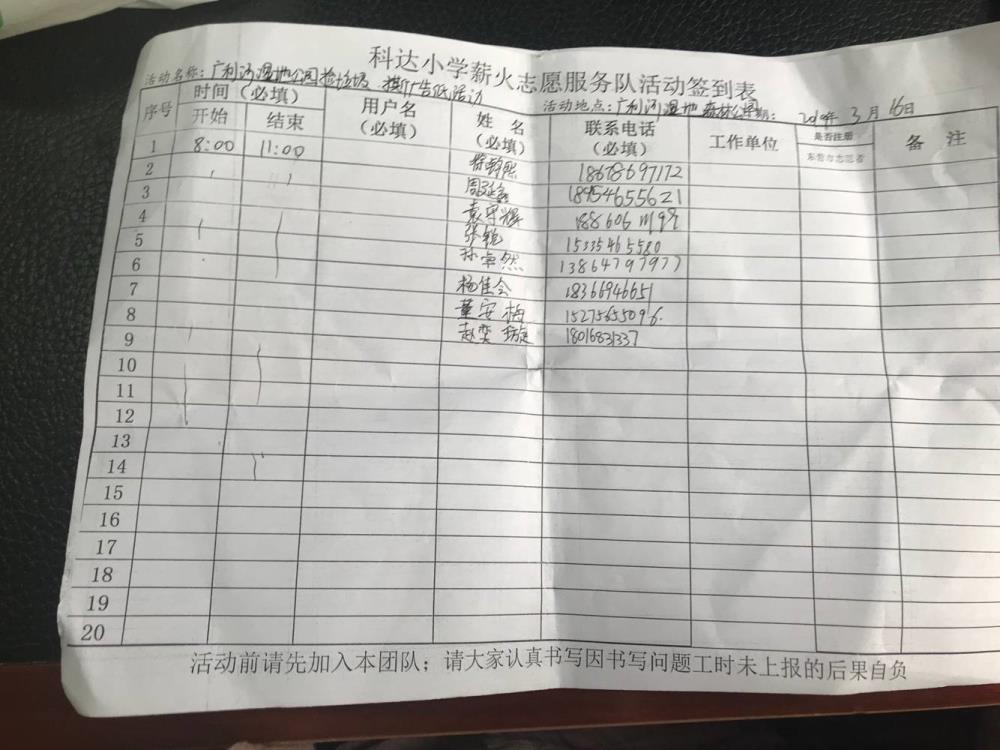 科达小学薪火志愿服务队活动签到表
活动名称：广利河湿地公园捡垃圾
活动地点：广利河湿地森林公园 日期： 2019年 3月 16日
序号 时间（必填） 用户名（必填） 姓名（必填） 联系电话（必填） 工作单位 是否注册东营市志愿者 备 注
开始 结束
1 8:00 11:00
2 18678697172
3 18954655621
4 袁守辉
5 张锐 15335465580
6 孙卓然 13864797977
7 杨佳会 18366946651
8 董安梅 15275655096.
9 赵奕璇 18016831337
10
11
12
13
14
15
16
17
18
19
20
活动前请先加入本团队；请大家认真书写因书写问题工时未上报的后果自负